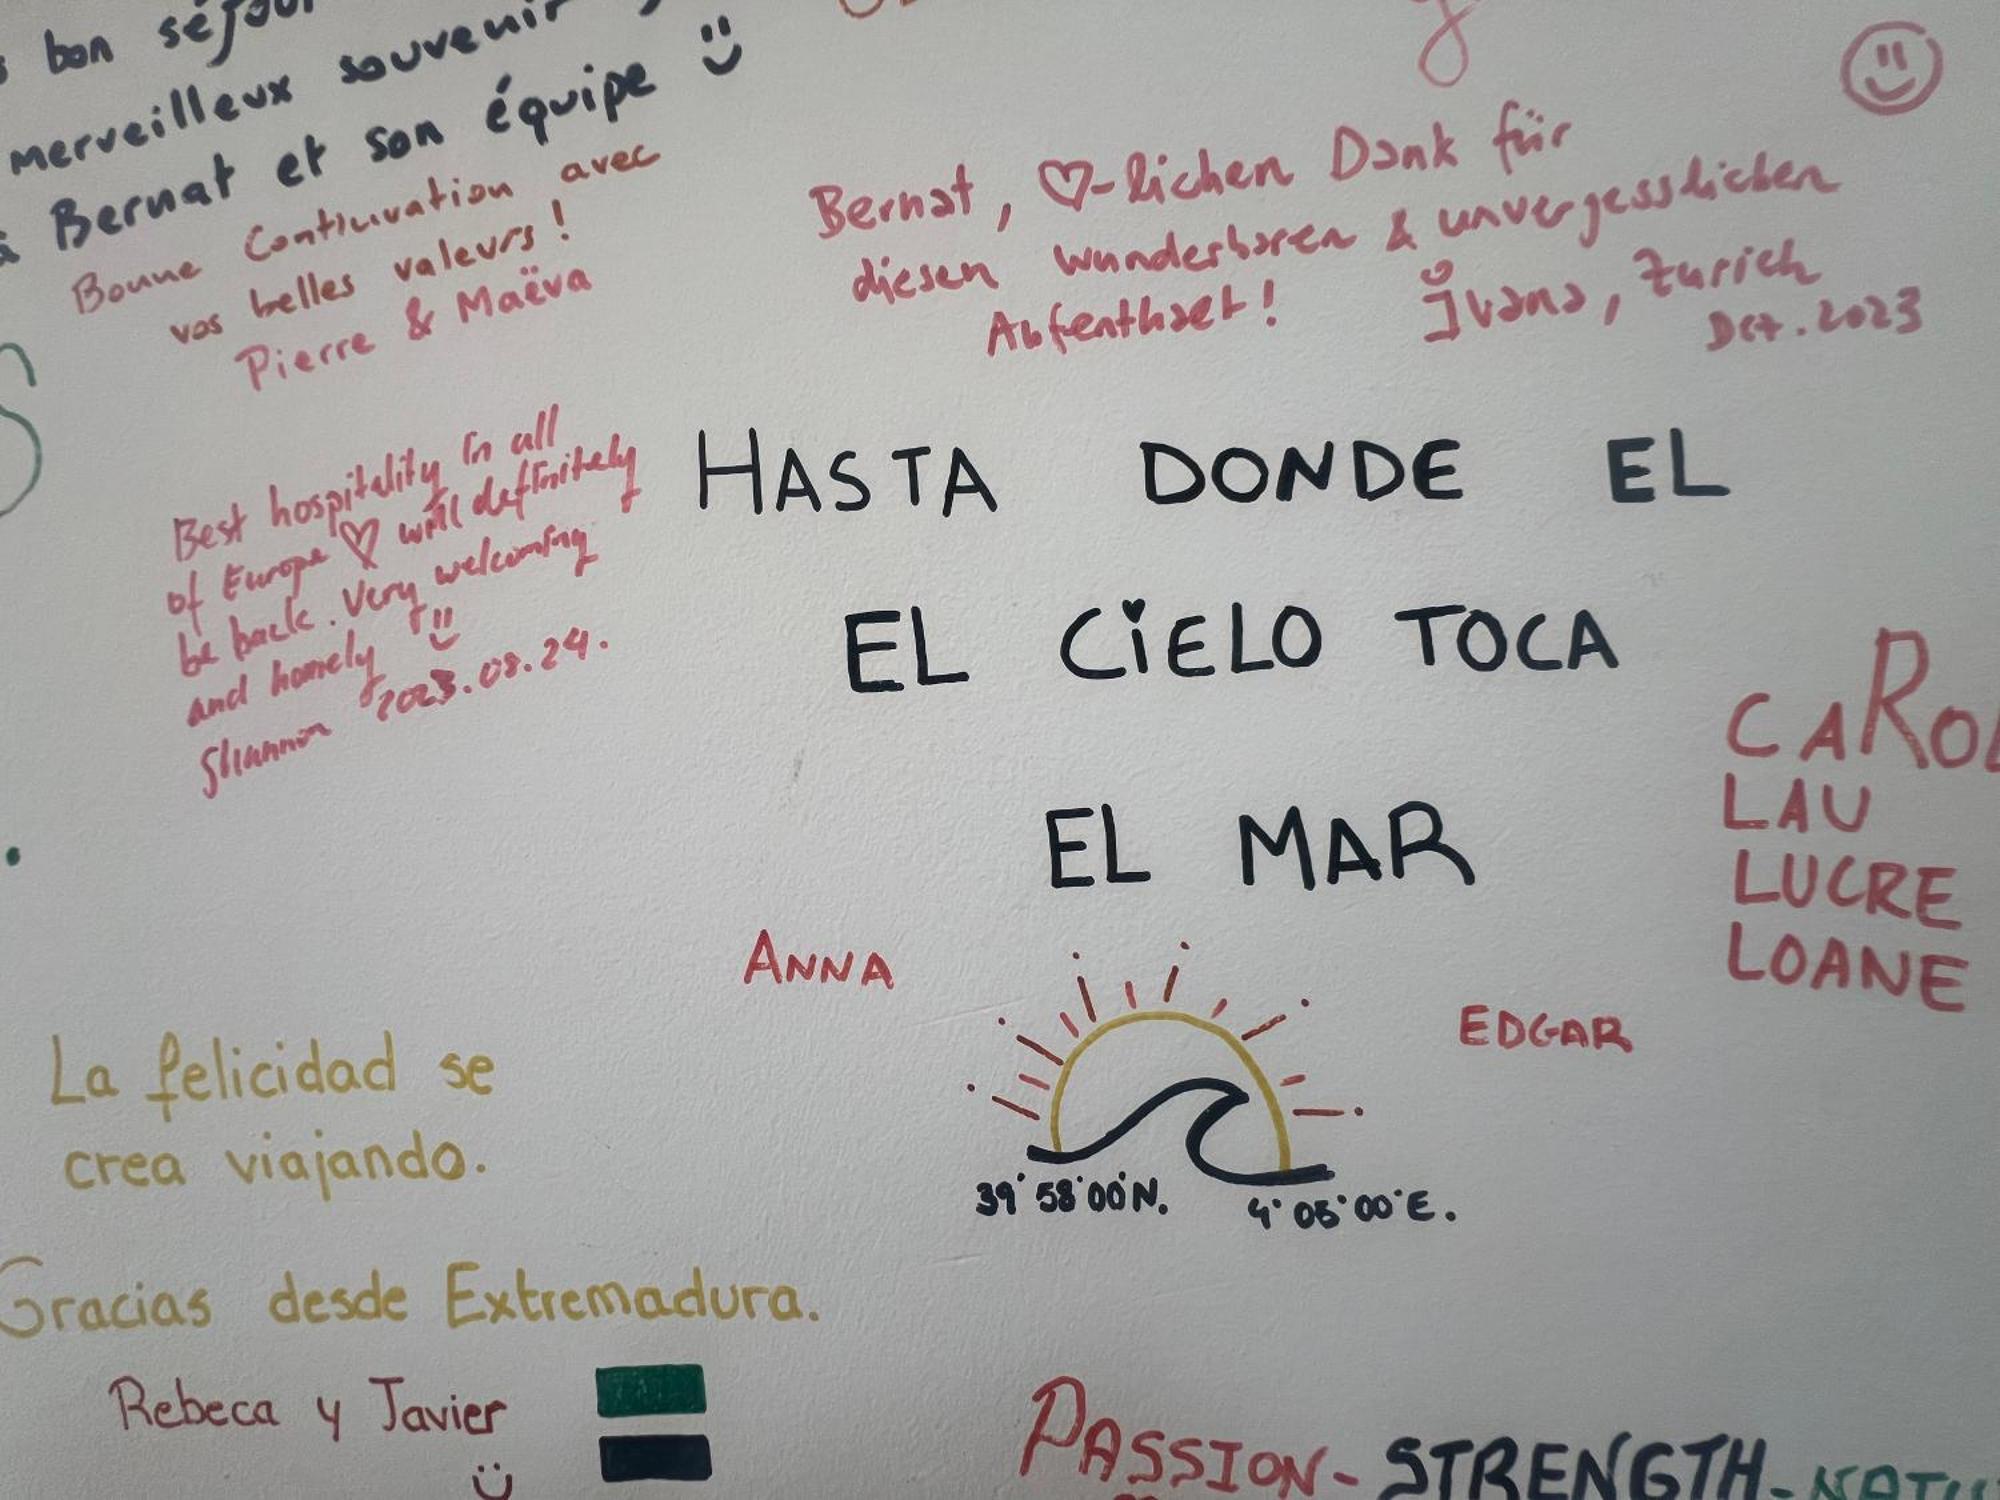 bon séjour
merveilleux souvenir
à Bernat et son équipe
Bonne Continuation avec
vos belles valeurs!
Pierre & Maëva
Bernat, ♡-lichen Dank für
diesen wunderbaren & unvergesslichen
Aufenthalt!
Ivana, Zürich
Dez. 2023
Best hospitality in all
of Europe ♡ will definitely
be back. Very welcoming
and homely
Shannon 2023.08.24.
HASTA DONDE EL
EL CiELO TOCA
EL MAR
CAROL
LAU
LUCRE
LOANE
ANNA
EDGAR
39° 58' 00" N. 4° 05' 00" E.
La felicidad se
crea viajando.
Gracias desde Extremadura.
Rebeca y Javier
PASSION - STRENGTH - NATU